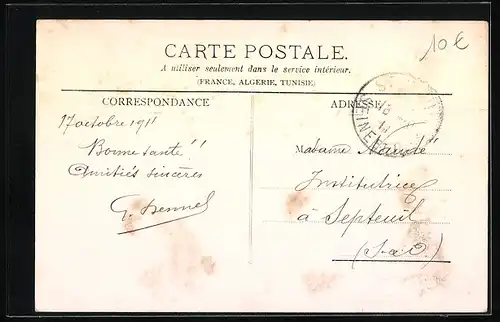 CARTE POSTALE.
10€
A utiliser seulement dans le service intérieur.
(FRANCE, ALGERIE, TUNISIE)
CORRESPONDANCE
17 octobre 1911
Bonne santé!!
Amitiés sincères
ADRESSE
Madame
Institutrice
à Septeuil
(S&O)